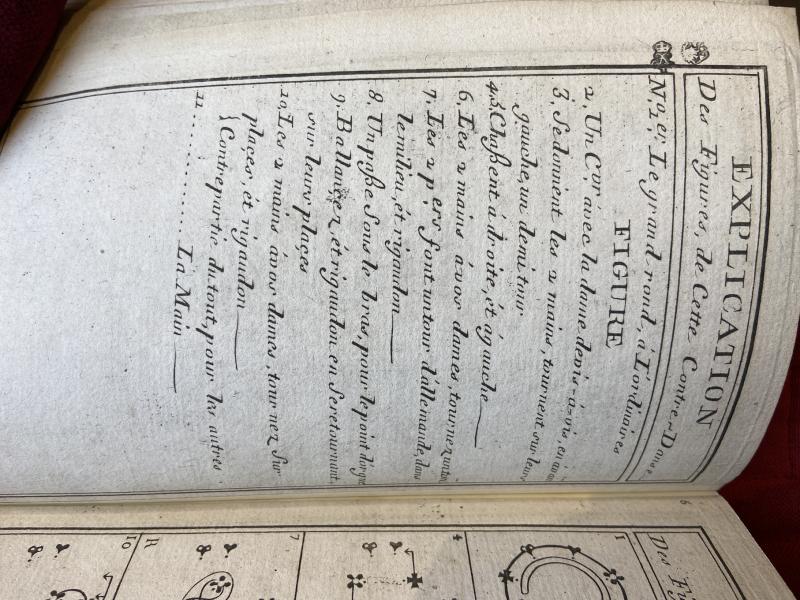 EXPLICATION
Des Figures, de Cette Contre-Danse
N.º 1.er Le grand rond, à L'ordinaires
FIGURE
2. Un Cv.r avec la dame devis-à-vis, en
3. Se donnent les 2 mains, tournent sur leur
gauche, un demi tour
4.5. Chaßent à droite, et à gauche
6. Les 2 mains à vos dames, tournez
7. Les 2 p.ers font un tour d'allemande, dans
le milieu, et rigaudon
8. Un paße sous le bras, pour le point d'orgue
9. Ballancez, et rigaudon en se retournant
sur leurs places
10. Les 2 mains à vos dames, tournez sur
places, et rigaudon
11 { Contrepartie du tout, pour les autres
La Main
6
Des Fi
1
4
7
R
10